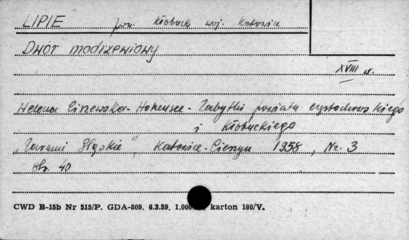 LIPIE pow. Kłobuck woj. Katowice
Dwór modrzewiowy
XVIII w.
Helena Ciszewska-Hohensee - Zabytki powiatu częstochowskiego
i Kłobuckiego
"Zaranie Śląskie", Katowice-Cieszyn 1958, Nr. 3
str. 40
CWD B-15b Nr 515/P. GDA-809. 6.3.59. 1.000 karton 180/V.